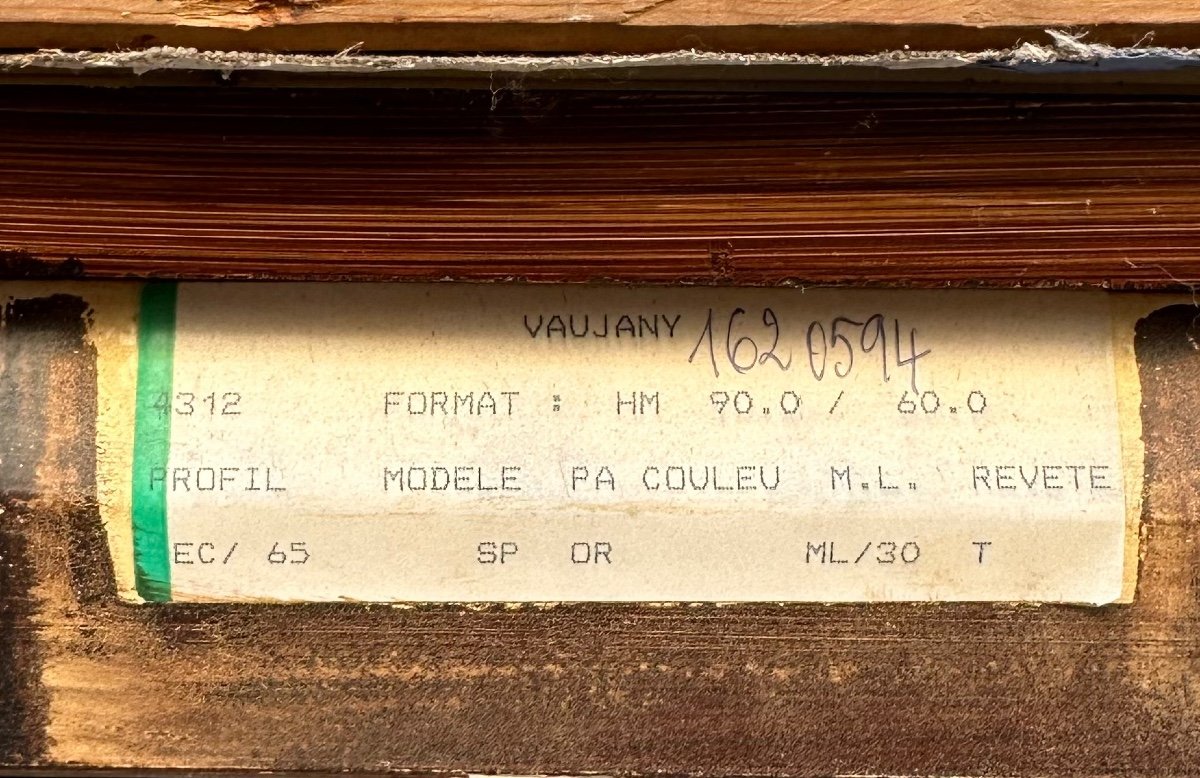 VAUJANY 162 0594
4312 FORMAT : HM 90.0 / 60.0
PROFIL MODELE PA COULEU M.L. REVETE
EC/ 65 SP OR ML/30 T